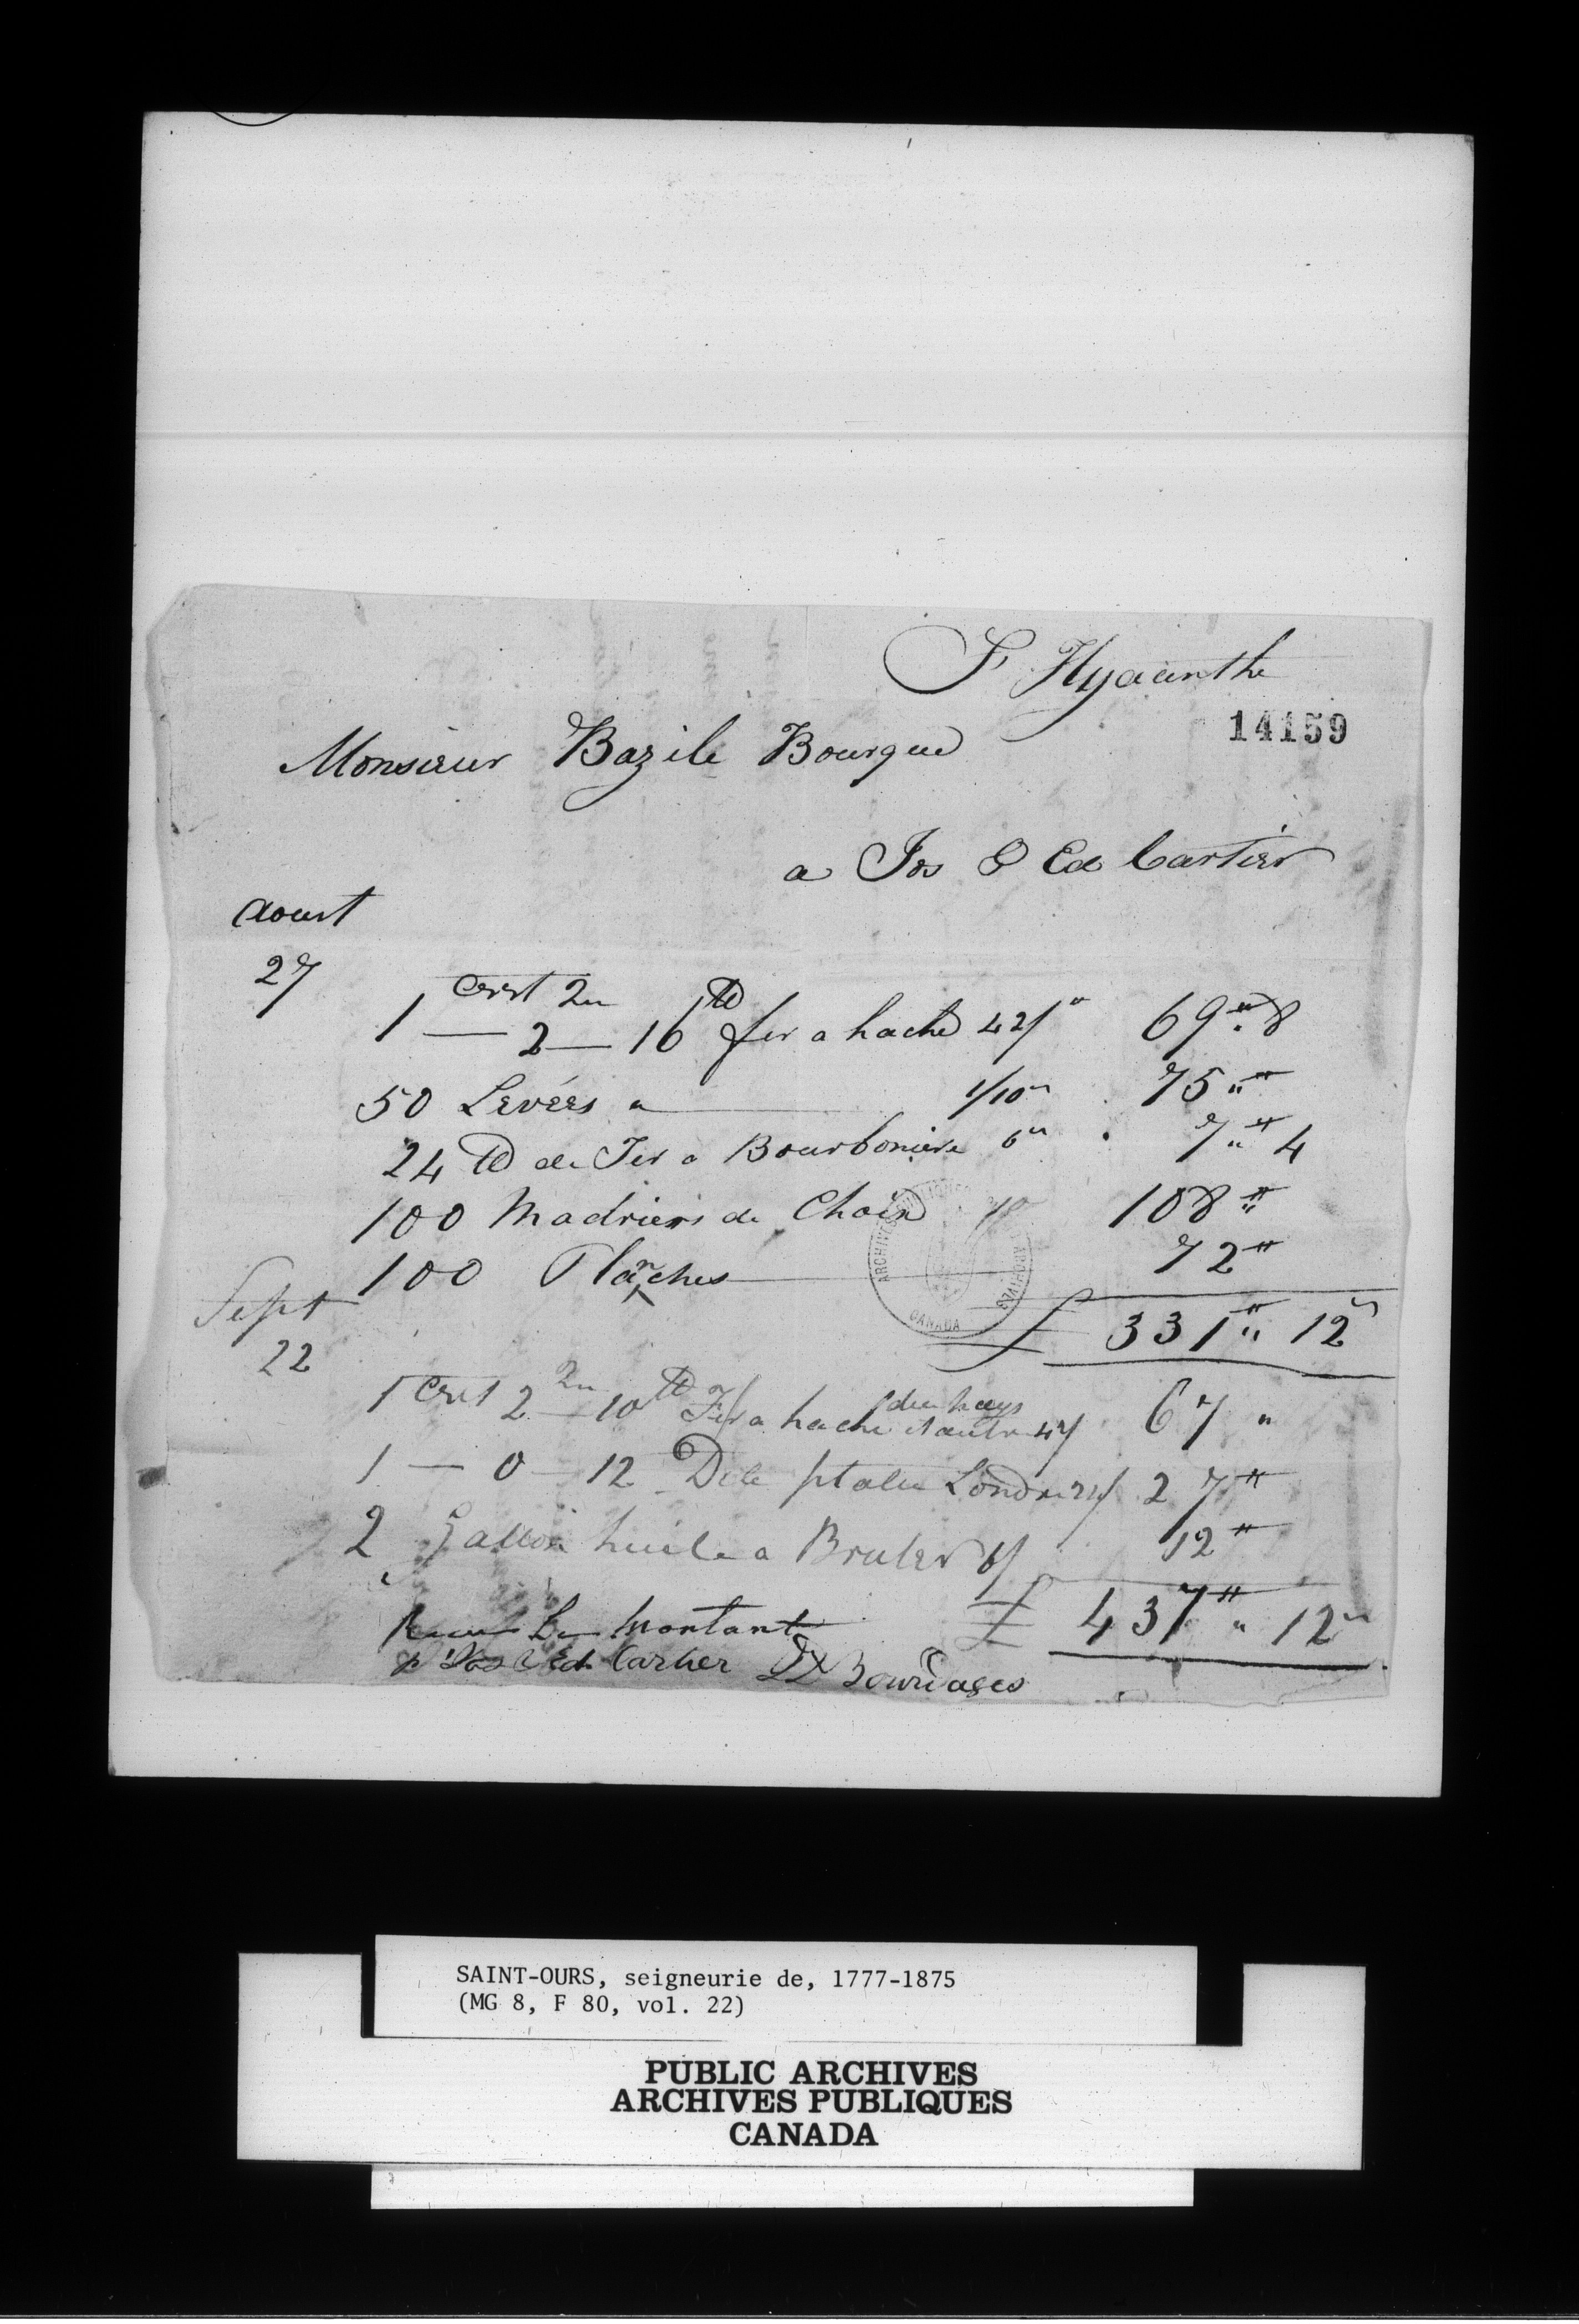 St Hyacinthe
14159
Monsieur Bazile Bourque
a Jos & Ed Cartier
Aoust
27
1 Cent 2 qrs 16 lb fer a hache 42/" 69" 8
50 Levées a 1/10" 75"
24 lb de Fer a Bourboniere 6" 7" 4
100 Madriers de Choix 108"
100 Planches 72"
£ 331" 12
Sept
22
1 Cent 2 qrs 10 lb Fer a hache 67 "
1 — 0 — 12 Londre 27"
2 Gallon huile a Bruler 6/ 12"
£ 437" 12
Recu Le Montant
p Jos & Ed. Cartier Bourdages
ARCHIVES PUBLIQUES
ARCHIVES
CANADA
SAINT-OURS, seigneurie de, 1777-1875
(MG 8, F 80, vol. 22)
PUBLIC ARCHIVES
ARCHIVES PUBLIQUES
CANADA